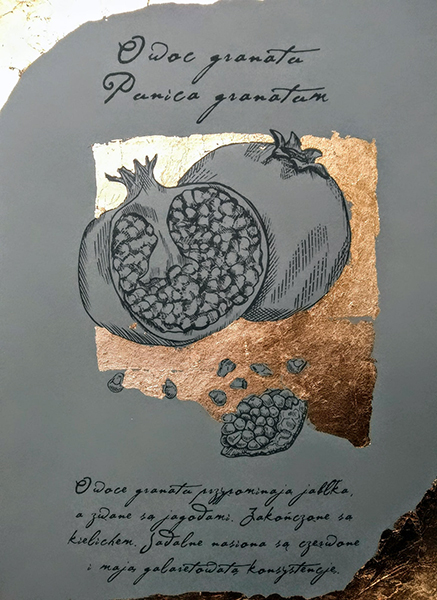 Owoc granatu
Punica granatum
Owoce granatu przypominają jabłka,
a zwane są jagodami. Zakończone są
kielichem. Jadalne nasiona są czerwone
i mają galaretowatą konsystencję.